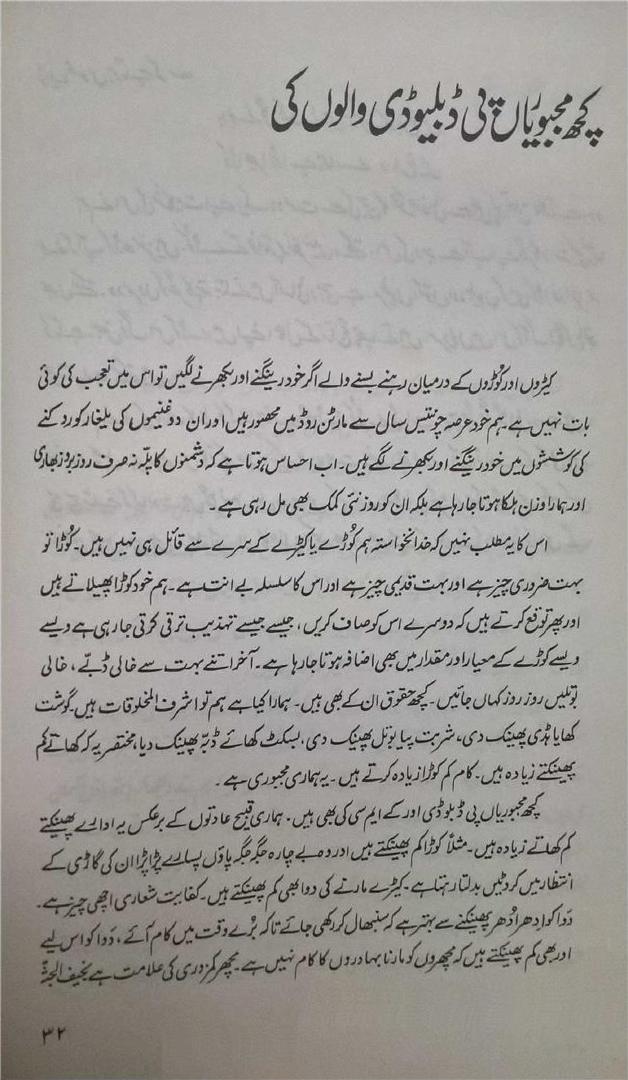 کچھ مجبوریاں پی ڈبلیو ڈی والوں کی
کیڑوں اور کوڑوں کے درمیان رہنے بسنے والے اگر خود رینگنے اور بکھرنے لگیں تو اس میں تعجب کی کوئی
بات نہیں ہے۔ ہم خود عرصہ چونتیس سال سے مارٹن روڈ میں محصور ہیں اور ان دو غنیموں کی یلغار کو روکنے
کی کوششوں میں خود رینگنے اور بکھرنے لگے ہیں۔ اب احساس ہوتا ہے کہ دشمنوں کا پلّہ نہ صرف روز بروز بھاری
اور ہمارا وزن ہلکا ہوتا جا رہا ہے بلکہ ان کو روز نئی کمک بھی مل رہی ہے۔
اس کا یہ مطلب نہیں کہ خدانخواستہ ہم کوڑے یا کیڑے کے سرے سے قائل ہی نہیں ہیں۔ کوڑا تو
بہت ضروری چیز ہے اور بہت قدیمی چیز ہے اور اس کا سلسلہ بے انت ہے۔ ہم خود کوڑا پھیلاتے ہیں
اور پھر توقع کرتے ہیں کہ دوسرے اس کو صاف کریں، جیسے جیسے تہذیب ترقی کرتی جا رہی ہے ویسے
ویسے کوڑے کے معیار اور مقدار میں بھی اضافہ ہوتا جا رہا ہے۔ آخر اتنے بہت سے خالی ڈبّے، خالی
بوتلیں روز روز کہاں جائیں۔ کچھ حقوق ان کے بھی ہیں۔ ہمارا کیا ہے ہم تو اشرف المخلوقات ہیں۔ گوشت
کھایا ہڈی پھینک دی، شربت پیا بوتل پھینک دی، بسکٹ کھائے ڈبّہ پھینک دیا، مختصر یہ کہ کھاتے کم
پھینکتے زیادہ ہیں۔ کام کم کوڑا زیادہ کرتے ہیں۔ یہ ہماری مجبوری ہے۔
کچھ مجبوریاں پی ڈبلو ڈی اور کے ایم سی کی بھی ہیں۔ ہماری قبیح عادتوں کے برعکس یہ ادارے پھینکتے
کم کھاتے زیادہ ہیں۔ مثلاً کوڑا کم پھینکتے ہیں اور وہ بے چارہ جگہ جگہ پاؤں پسارے پڑا پڑا ان کی گاڑی کے
انتظار میں کروٹیں بدلتا رہتا ہے۔ کیڑے مارنے کی دوا بھی کم پھینکتے ہیں۔ کفایت شعاری اچھی چیز ہے۔
دوا کو ادھر اُدھر پھینکنے سے بہتر ہے کہ سنبھال کر رکھی جائے تاکہ بُرے وقت میں کام آئے، دوا کو اس لیے
اور بھی کم پھینکتے ہیں کہ مچھروں کو مارنا بہادروں کا کام نہیں ہے۔ مچھر کمزوری کی علامت ہے نحیف الجثّہ
۳۲